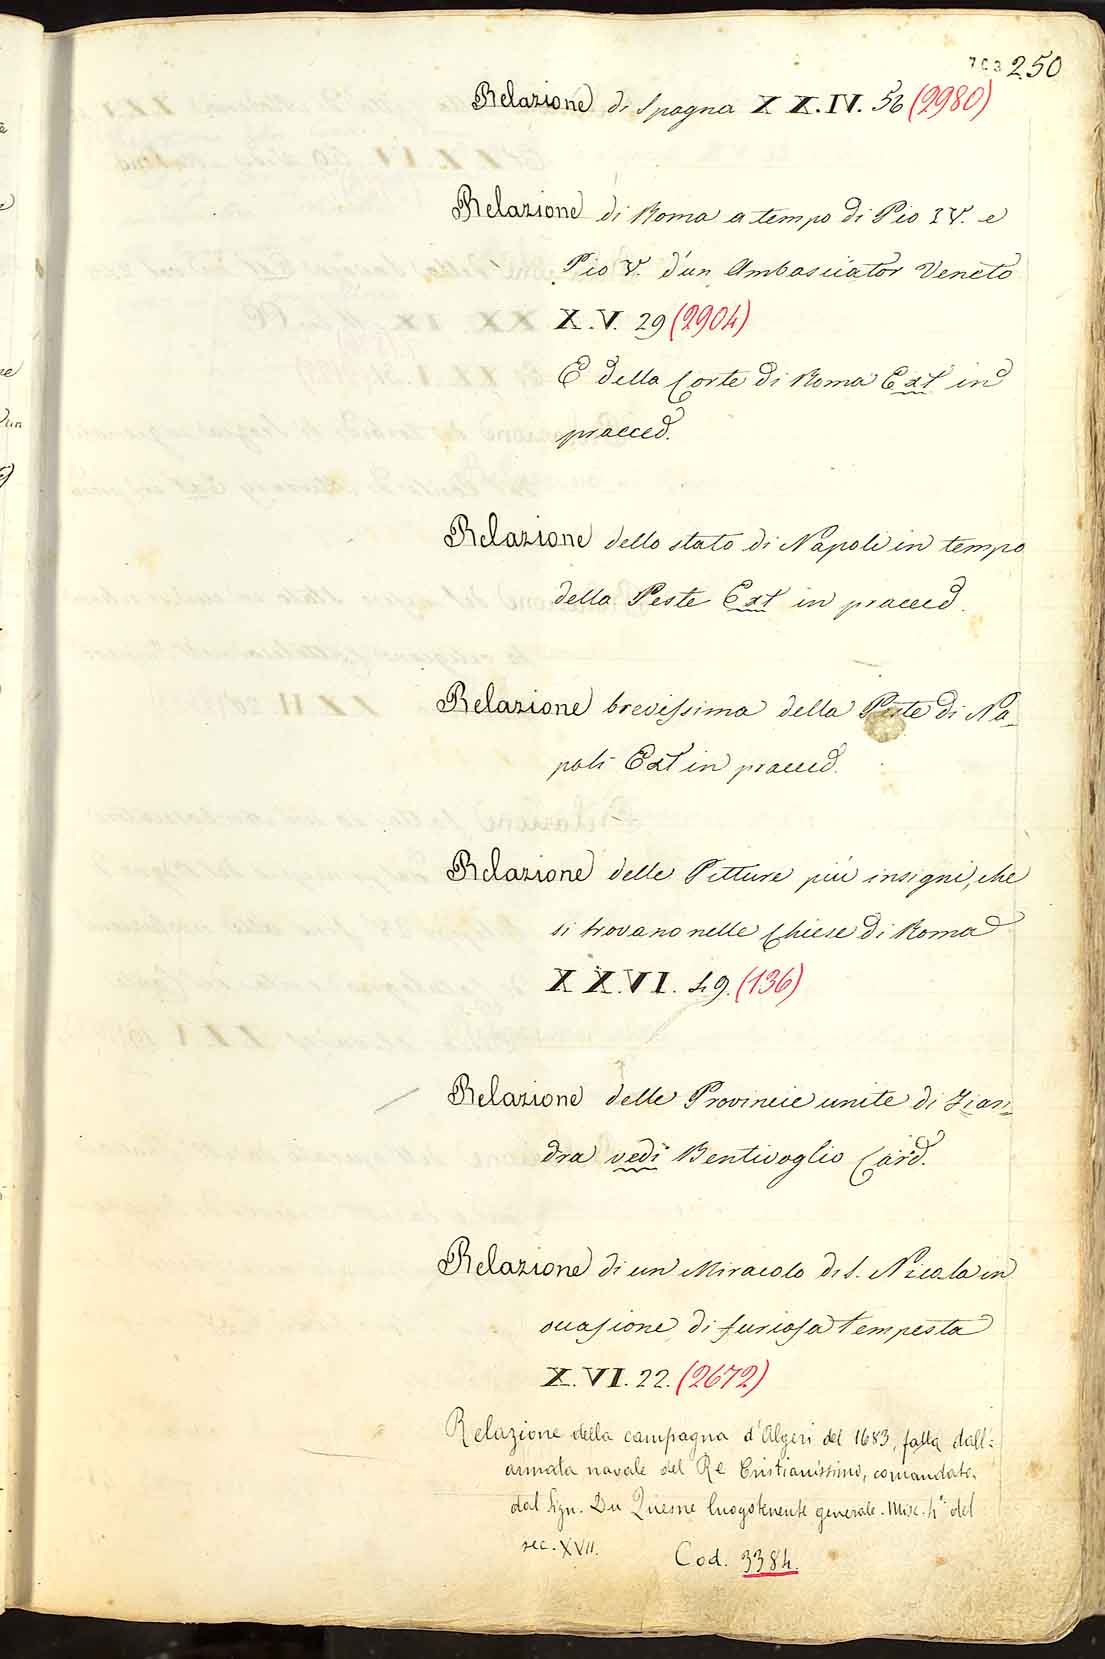 703 250
Relazione di Spagna X X. IV. 56 (2980)
Relazione di Roma a tempo di Pio IV. e
Pio V. d'un Ambasciator Veneto
X. V. 29 (2904)
E della Corte di Roma Ext in
praeced.
Relazione dello stato di Napoli in tempo
della Peste Ext in praeced.
Relazione brevissima della Peste di Na-
poli Ext in praeced.
Relazione delle Pitture più insigni, che
si trovano nelle Chiese di Roma
X X. VI. 49. (136)
Relazione delle Provincie unite di Fian-
dra vedi Bentivoglio Card.
Relazione di un Miracolo di S. Nicola in
occasione di furiosa tempesta
X. VI. 22. (2672)
Relazione della campagna d'Algeri del 1683, fatta dall'
armata navale del Re Cristianissimo, comandata
dal Sign. Du Quesne luogotenente generale. Misc. del
sec. XVII. Cod. 3384.